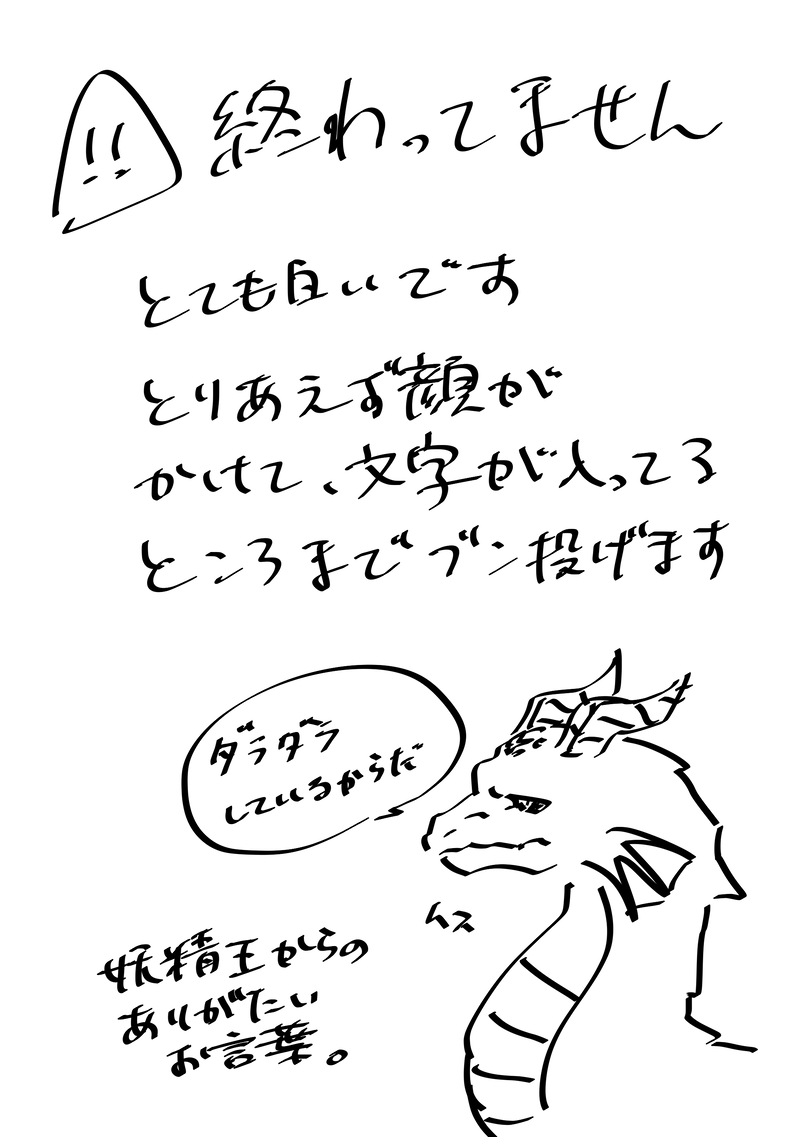 終わってません
とても良いです
とりあえず顔が
かけて、文字が入ってる
ところまでブン投げます
ダラダラ
しているからだ
ムス
妖精王からの
ありがたい
お言葉。